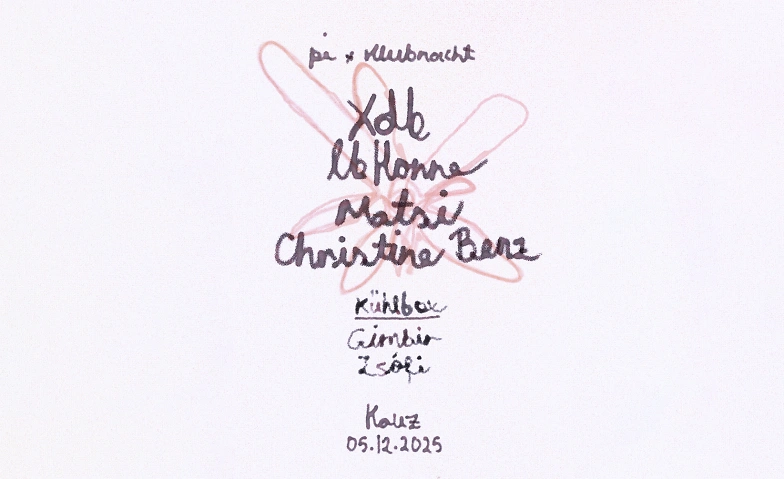 pi x Klubnacht
Xdb
lb Honne
Matsi
Christine Benz
Kühlbox
Gimbin
Zsófi
Kauz
05.12.2025